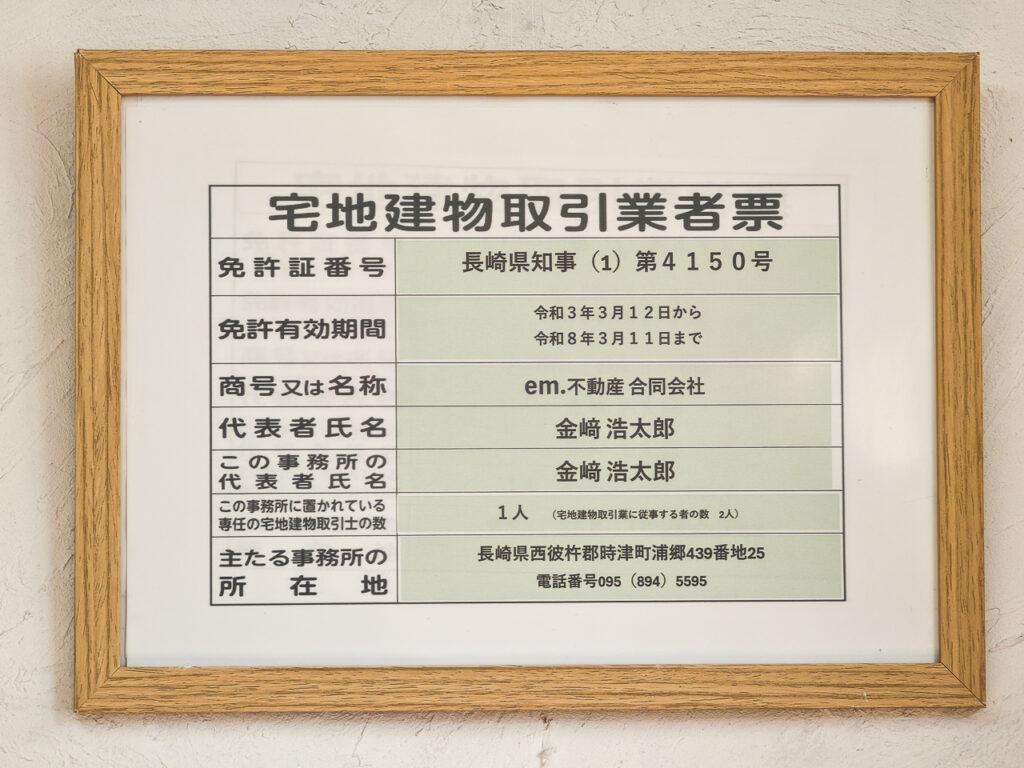 宅地建物取引業者票
免許証番号 長崎県知事（1）第４１５０号
免許有効期間 令和３年３月１２日から
令和８年３月１１日まで
商号又は名称 em.不動産 合同会社
代表者氏名 金﨑 浩太郎
この事務所の
代表者氏名 金﨑 浩太郎
この事務所に置かれている
専任の宅地建物取引士の数 １人 （宅地建物取引業に従事する者の数 2人）
主たる事務所の
所在地 長崎県西彼杵郡時津町浦郷439番地25
電話番号095（894）5595